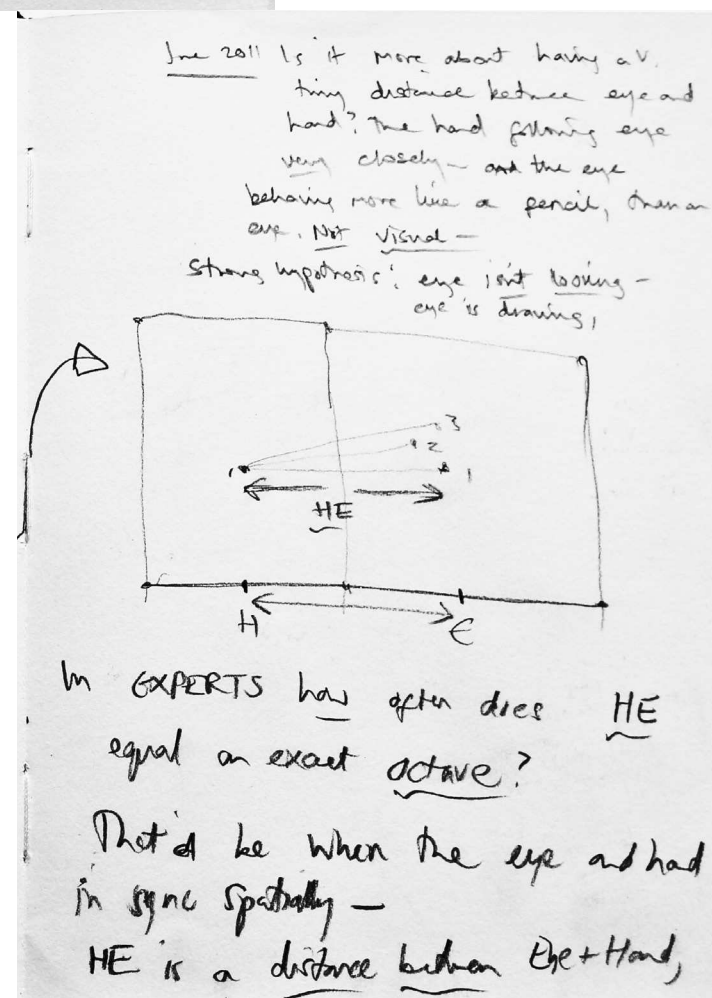 June 2011 Is it more about having a v.
tiny distance between eye and
hand? The hand following eye
very closely – and the eye
behaving more like a pencil, than an
eye. Not visual –
Strong hypothesis: eye isn't looking –
eye is drawing,
3
2
1
HE
H E
In EXPERTS how often does HE
equal an exact octave?
That'd be when the eye and hand
in sync spatially –
HE is a distance between Eye + Hand,